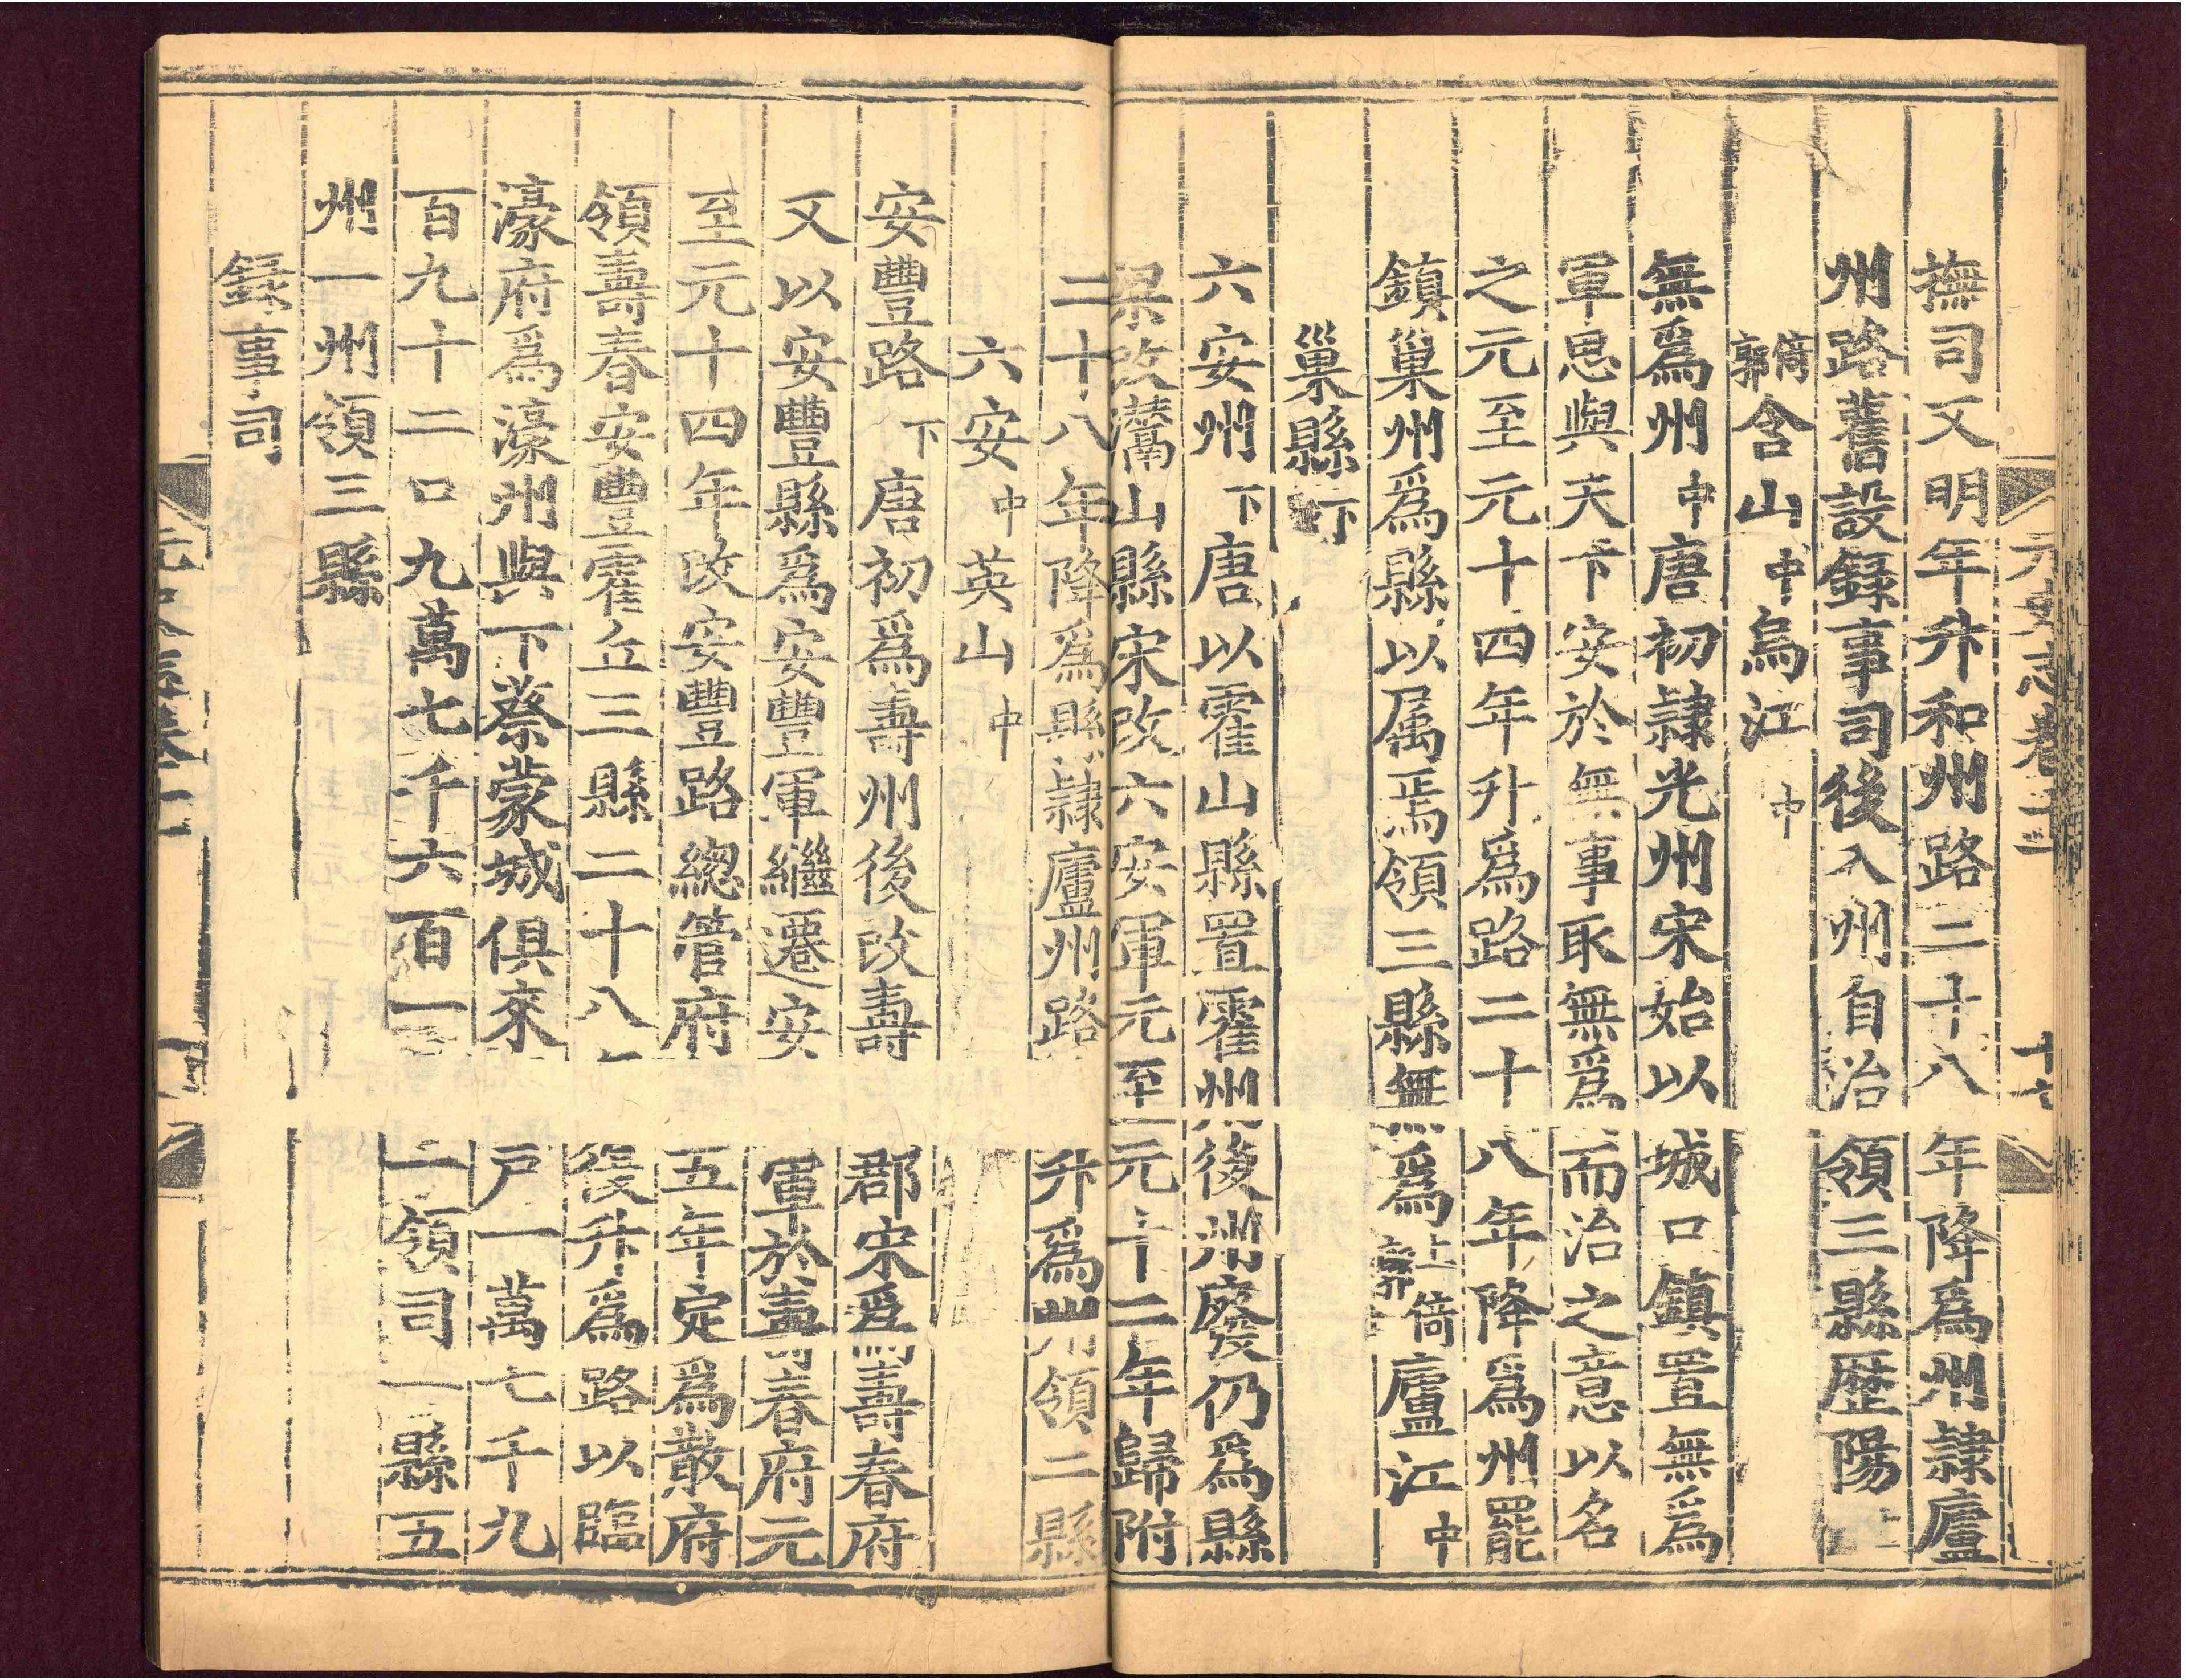 撫司又明年升和州路二十八年降爲州隸廬
州路舊設錄事司後入州自治領三縣歷陽上
倚郭含山中烏江中
無爲州中唐初隸光州宋始以城口鎮置無爲
軍思與天下安於無事取無爲而治之意以名
之元至元十四年升爲路二十八年降爲州罷
鎮巢州爲縣以属焉領三縣無爲上倚郭廬江中
巢縣下
六安州下唐以霍山縣置霍州後州廢仍爲縣
梁改灊山縣宋改六安軍元至元十二年歸附
二十八年降爲縣隸廬州路升爲州領二縣
六安中英山中
安豐路下唐初爲壽州後改壽郡宋爲壽春府
又以安豐縣爲安豐軍繼遷安軍於壽春府元
至元十四年改安豐路總管府五年定爲散府
領壽春安豐霍丘三縣二十八年復升爲路以臨
濠府爲濠州與下蔡蒙城俱來戶一萬七千九
百九十二口九萬七千六百一十一領司一縣五
州一州領三縣
錄事司